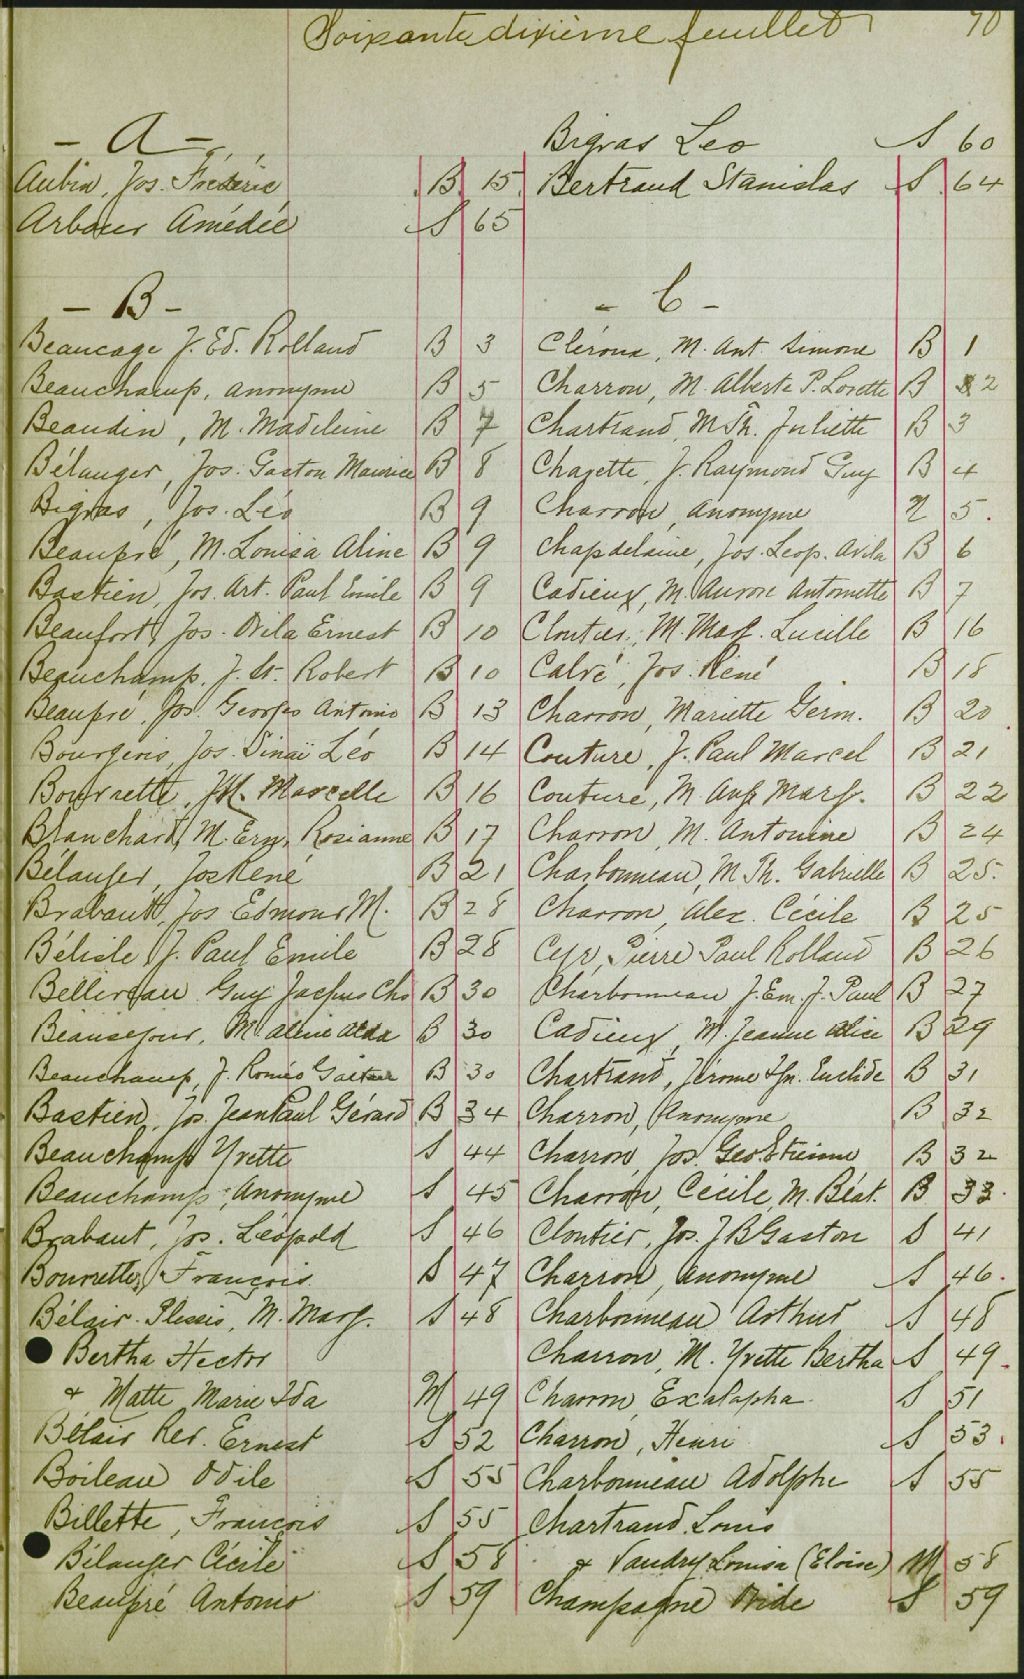 Soixante dixième feuillet 70
- A -
Aubin, Jos. Frédéric B 15
Arbour Amédée S 65
- B -
Beaucage J. Ed. Rolland B 3
Beauchamp, anonyme B 5
Beaudin, M. Madeleine B 7
Bélanger, Jos. Gaston Maurice B 8
Bigras, Jos. Léo B 9
Beaupré, M. Louisa Aline B 9
Bastien, Jos. Art. Paul Emile B 9
Beaufort, Jos. Ovila Ernest B 10
Beauchamp, J. Robert B 10
Beaupré, Jos. Georges Antonio B 13
Bourgeois, Jos. Sinaï Léo B 14
Bourrette, Marcelle B 16
Blanchard, M. Ern. Rosianne B 17
Bélanger, Jos René B 21
Brabant, Jos Edmour M. B 28
Bélisle J. Paul Emile B 28
Belliveau Guy Jacques Chs B 30
Beausejour, M. aline alda B 30
Beauchamp, J. Roméo Gaétan B 30
Bastien, Jos. Jean Paul Gérard B 34
Beauchamp Yvette S 44
Beauchamp, Anonyme S 45
Brabant, Jos. Léopold S 46
Bourrette, François S 47
Bélair-Plessis, M. Marg. S 48
Bertha Hector
& Matte, Marie Ida M 49
Bélair Rev. Ernest S 52
Boileau Odile S 55
Billette, François S 55
Bélanger Cécile S 58
Beaupré Antonio S 59
Bigras Leo S 60
Bertrand Stanislas S 64
- C -
Cléroux, M. Ant. Simone B 1
Charron, M. Alberte P. Lorette B 2
Chartrand, M Th. Juliette B 3
Chayette, J. Raymond Guy B 4
Charron, anonyme N 5.
Chapdelaine, Jos. Leop. Avila B 6
Cadieux, M. Aurore Antoinette B 7
Cloutier, M. Marg. Lucille B 16
Calvé, Jos. René B 18
Charron, Mariette Germ. B 20
Couture, J. Paul Marcel B 21
Couture, M Aug Marg. B 22
Charron, M. Antonine B 24
Charbonneau, M Th. Gabrielle B 25.
Charron, Alex. Cécile B 25
Cyr, Pierre Paul Rolland B 26
Charbonneau J. Em. J. Paul B 27
Cadieux, M. Jeanne Alice B 29
Chartrand, Jérome Euclide B 31
Charron, Anonyme B 32
Charron, Jos. Geo. Etienne B 32
Charron, Cécile, M. Béat. B 33.
Cloutier, Jos. J B Gaston S 41
Charron, anonyme S 46.
Charbonneau Arthur S 48
Charron, M. Yvette Bertha S 49.
Charron, S 51
Charron, Henri S 53.
Charbonneau Adolphe S 55
Chartrand Louis
& Vaudry Louisa (Eloise) M 58
Champagne S 59